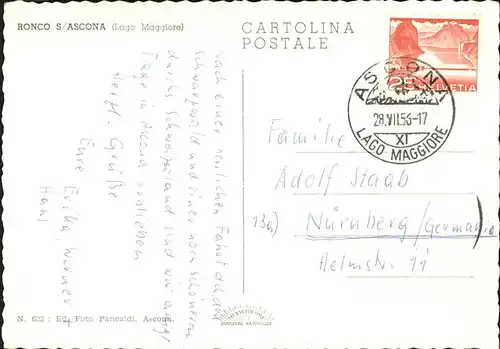 RONCO S/ASCONA (Lago Maggiore)
CARTOLINA
POSTALE
25
HELVETIA
ASCONA
28.VII.56-17
XI
LAGO MAGGIORE
Nach einer herrlichen Fahrt durch den
Schwarzwald und einer noch schöneren
durchs Schweizerland sind wir einige
Tage in Ascona verblieben
Herzl. Grüße
Eure Erika, Werner +
Hanl
Familie
Adolf Staab
13a) Nürnberg (Germania)
Helmstr. 11
N. 622 : Ed. Foto Pancaldi, Ascona.